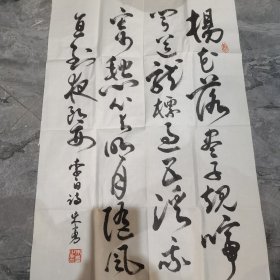 楊花落盡子規啼
聞道龍標過五溪我
寄愁心與明月隨風
直到夜郎西
李白詩